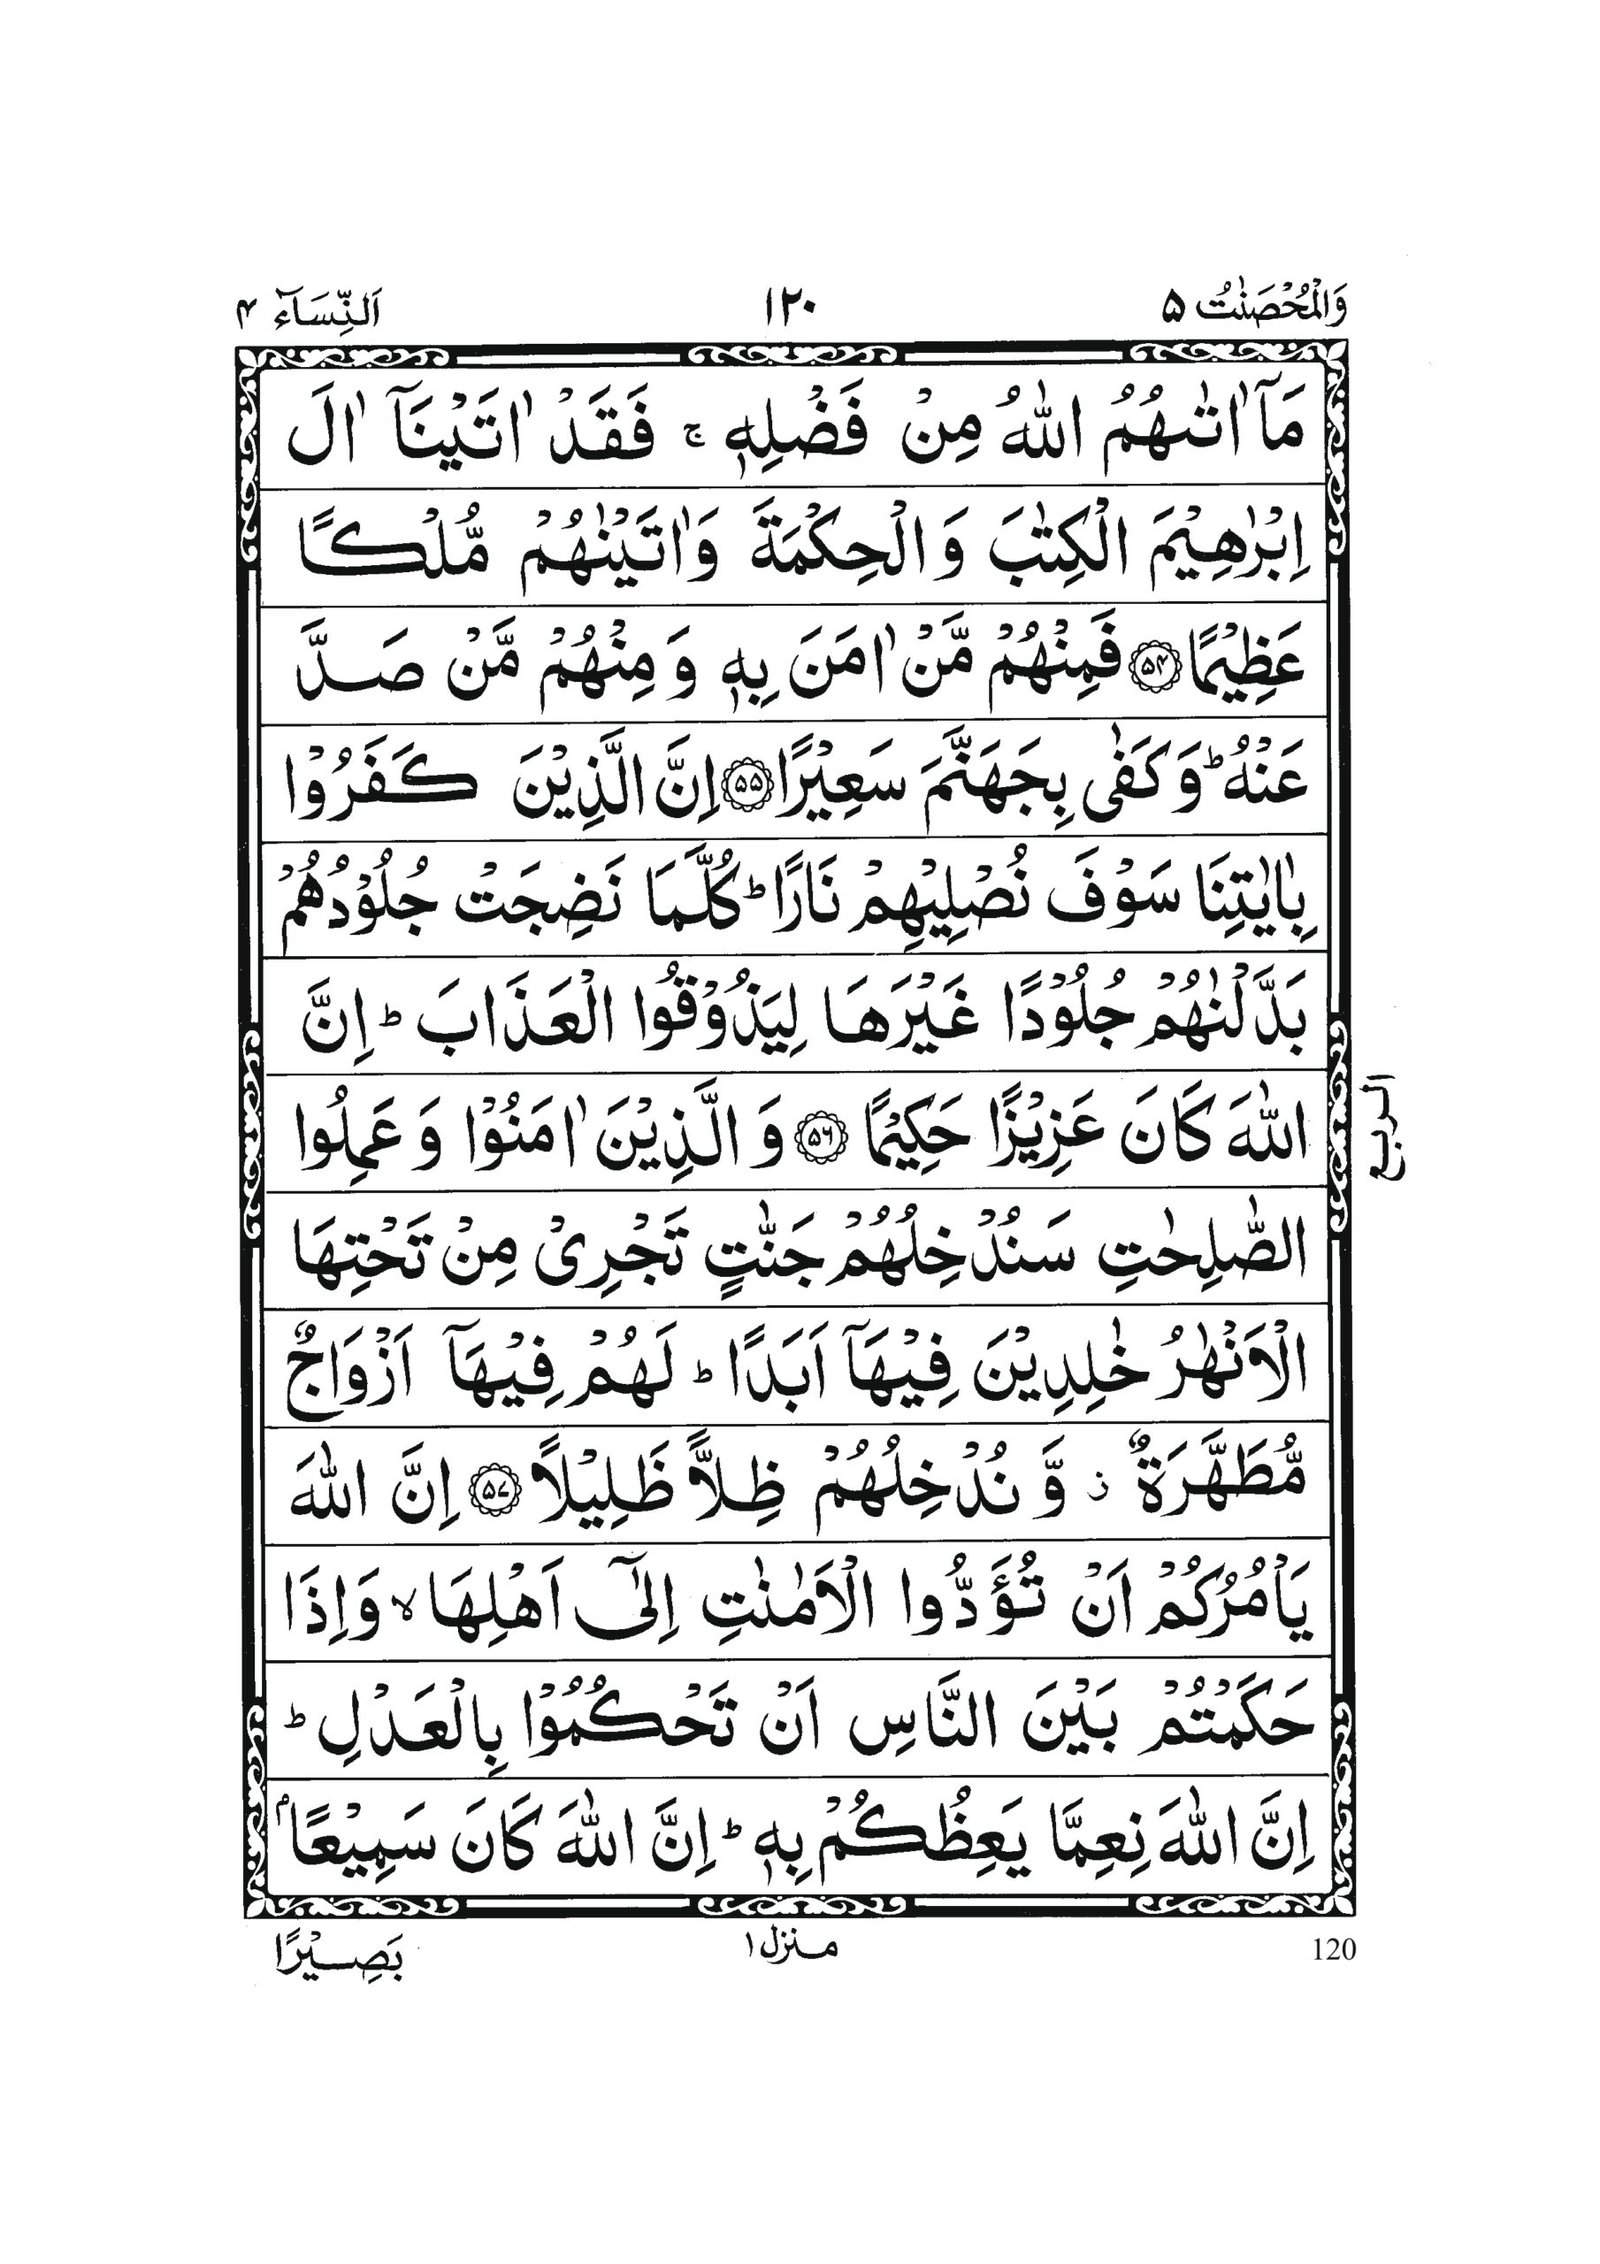 وَالْمُحْصَنٰتُ ۵ ۱۲۰ اَلنِّسَآء ۴
مَآ اٰتٰىهُمُ اللّٰهُ مِنْ فَضْلِهٖ ۚ فَقَدْ اٰتَيْنَآ اٰلَ
اِبْرٰهِيْمَ الْكِتٰبَ وَ الْحِكْمَةَ وَاٰتَيْنٰهُمْ مُّلْكًا
عَظِيْمًا ۝۵۴ فَمِنْهُمْ مَّنْ اٰمَنَ بِهٖ وَ مِنْهُمْ مَّنْ صَدَّ
عَنْهُ ؕ وَ كَفٰى بِجَهَنَّمَ سَعِيْرًا ۝۵۵ اِنَّ الَّذِيْنَ كَفَرُوْا
بِاٰيٰتِنَا سَوْفَ نُصْلِيْهِمْ نَارًا ؕ كُلَّمَا نَضِجَتْ جُلُوْدُهُمْ
بَدَّلْنٰهُمْ جُلُوْدًا غَيْرَهَا لِيَذُوْقُوا الْعَذَابَ ؕ اِنَّ
اللّٰهَ كَانَ عَزِيْزًا حَكِيْمًا ۝۵۶ وَ الَّذِيْنَ اٰمَنُوْا وَ عَمِلُوا
الربع
الصّٰلِحٰتِ سَنُدْخِلُهُمْ جَنّٰتٍ تَجْرِيْ مِنْ تَحْتِهَا
الْاَنْهٰرُ خٰلِدِيْنَ فِيْهَآ اَبَدًا ؕ لَهُمْ فِيْهَآ اَزْوَاجٌ
مُّطَهَّرَةٌ ز وَّ نُدْخِلُهُمْ ظِلًّا ظَلِيْلًا ۝۵۷ اِنَّ اللّٰهَ
يَاْمُرُكُمْ اَنْ تُؤَدُّوا الْاَمٰنٰتِ اِلٰٓى اَهْلِهَا ۙ وَاِذَا
حَكَمْتُمْ بَيْنَ النَّاسِ اَنْ تَحْكُمُوْا بِالْعَدْلِ ؕ
اِنَّ اللّٰهَ نِعِمَّا يَعِظُكُمْ بِهٖ ؕ اِنَّ اللّٰهَ كَانَ سَمِيْعًاۢ
120 منزل ۱ بَصِيْرًا